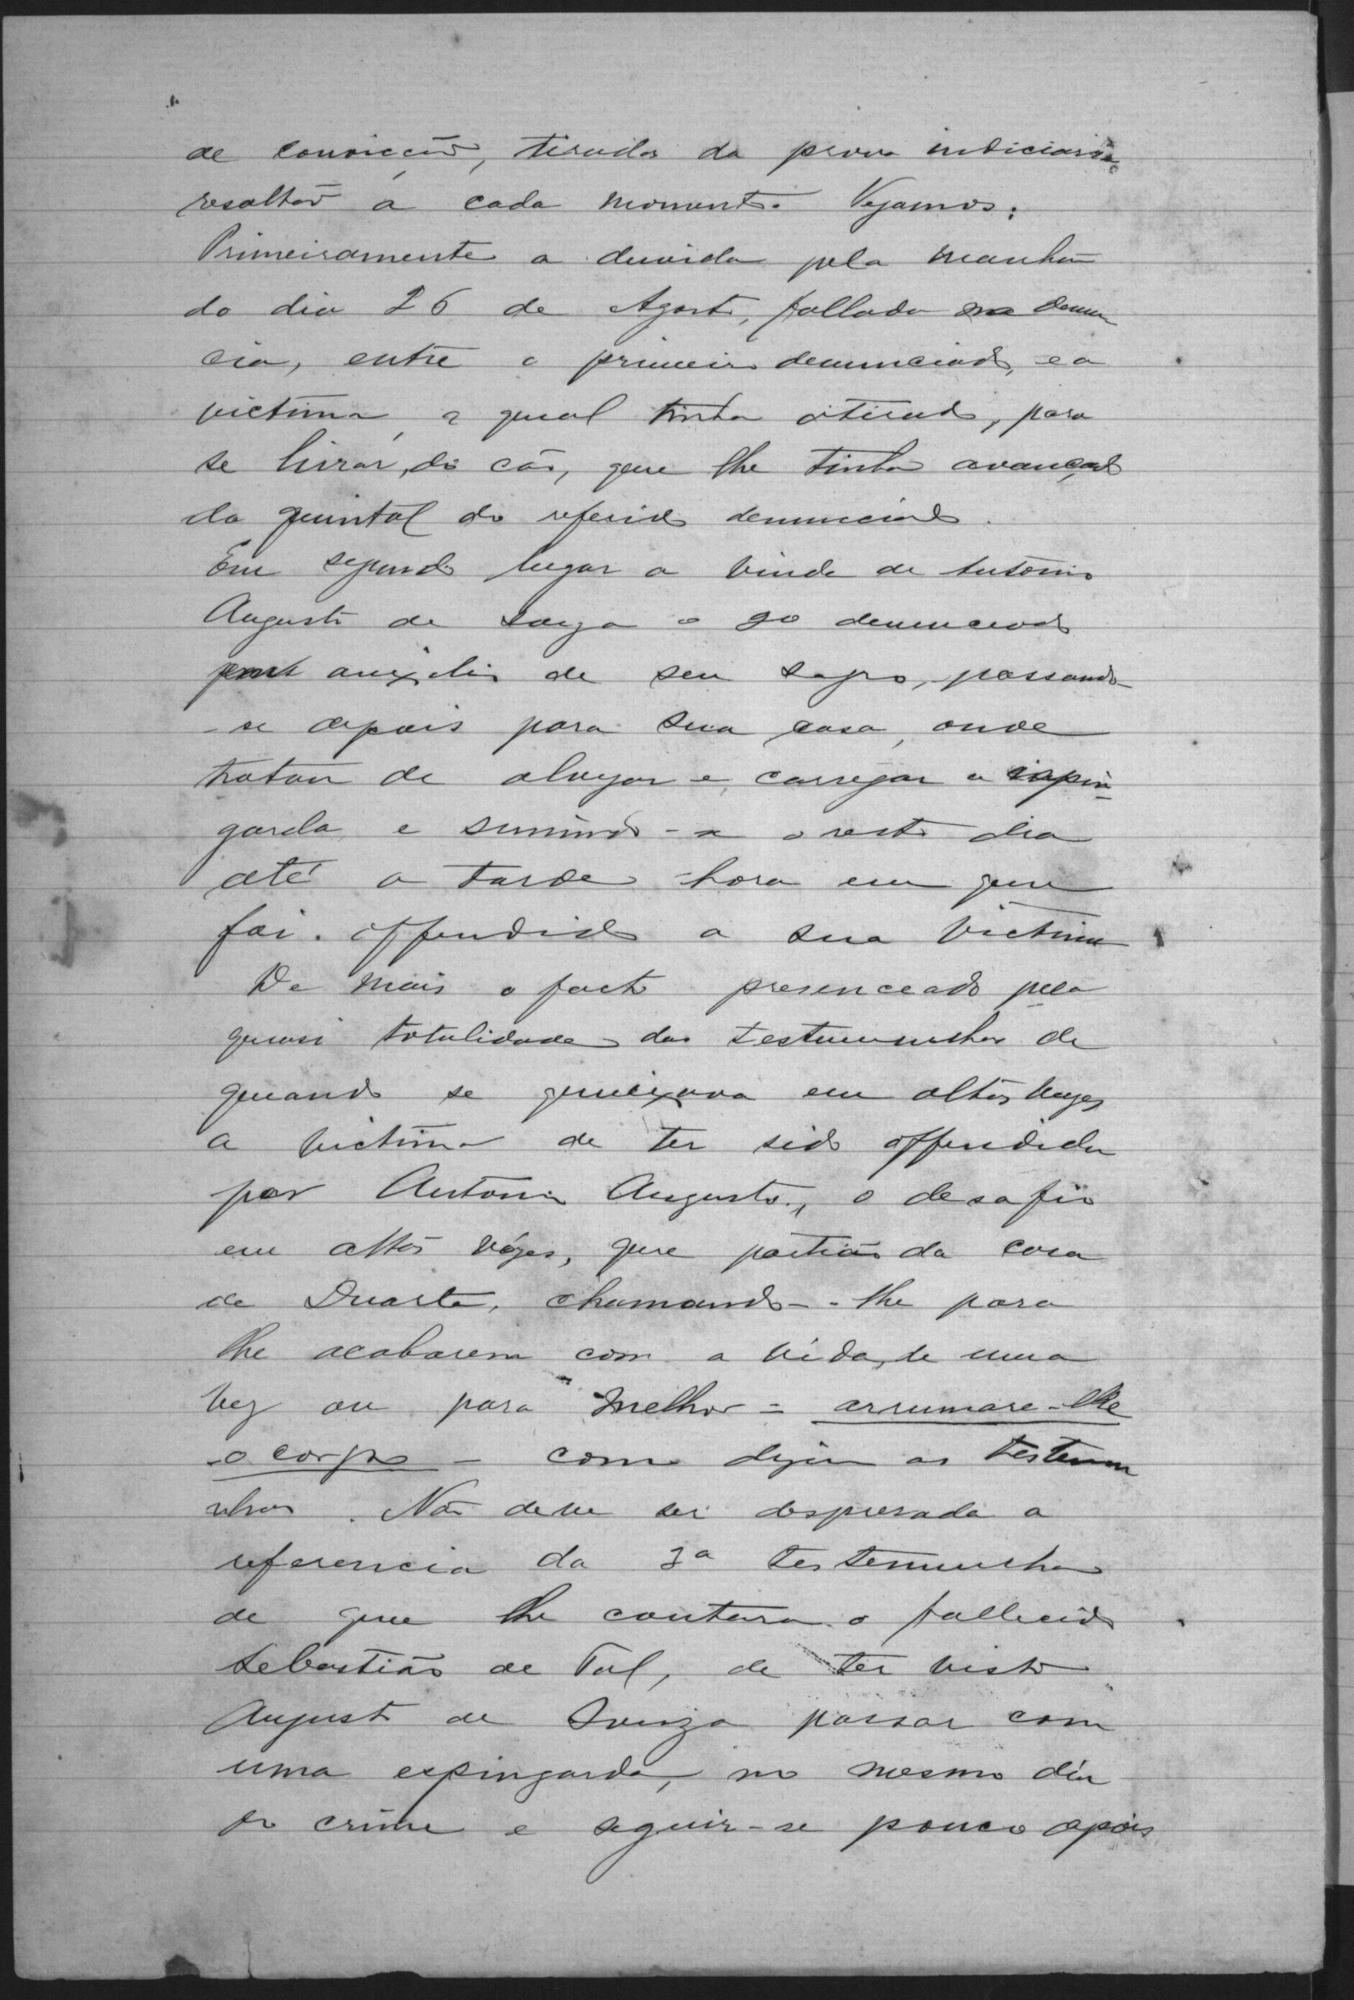 de convicção, tirados da prova indiciaria
resaltão a cada momento. Vejamos:
Primeiramente a duvida pela manhã
do dia 26 de Agosto, fallada na denun
cia, entre o primeiro denunciado, e a
victima, a qual tinha atirado, para
se livrar, do cão, que lhe tinha avançado
do quintal do referido denunciado.
Em segundo lugar a vinda de Antonio
Augusto de Souza o 2º denunciado
auxilio de seu sogro, passando
-se depois para sua casa, onde
tratou de alugar e carregar a espin-
garda e sumindo-se o resto dia
até a tarde hora em que
foi offendido a sua victima
De mais o facto presenceado pela
quasi totalidade das testemunhas de
quando se queixava em altos vozes
a victima de ter sido offendida
por Antonio Augusto, o desafio
em altos vózes, que partião da casa
de Duarte, chamando-lhe para
lhe acabarem com a vida, de uma
vez ou para melhor = arrumare-lhe
o corpo - como dizem as testemu
nhas. Não deve ser despresada a
referencia da 3ª testemunha
de que lhe contara o fallecido
Sebastião de Tal, de ter visto
Augusto de Souza passar com
uma espingarda, no mesmo dia
do crime e seguir-se pouco apóis